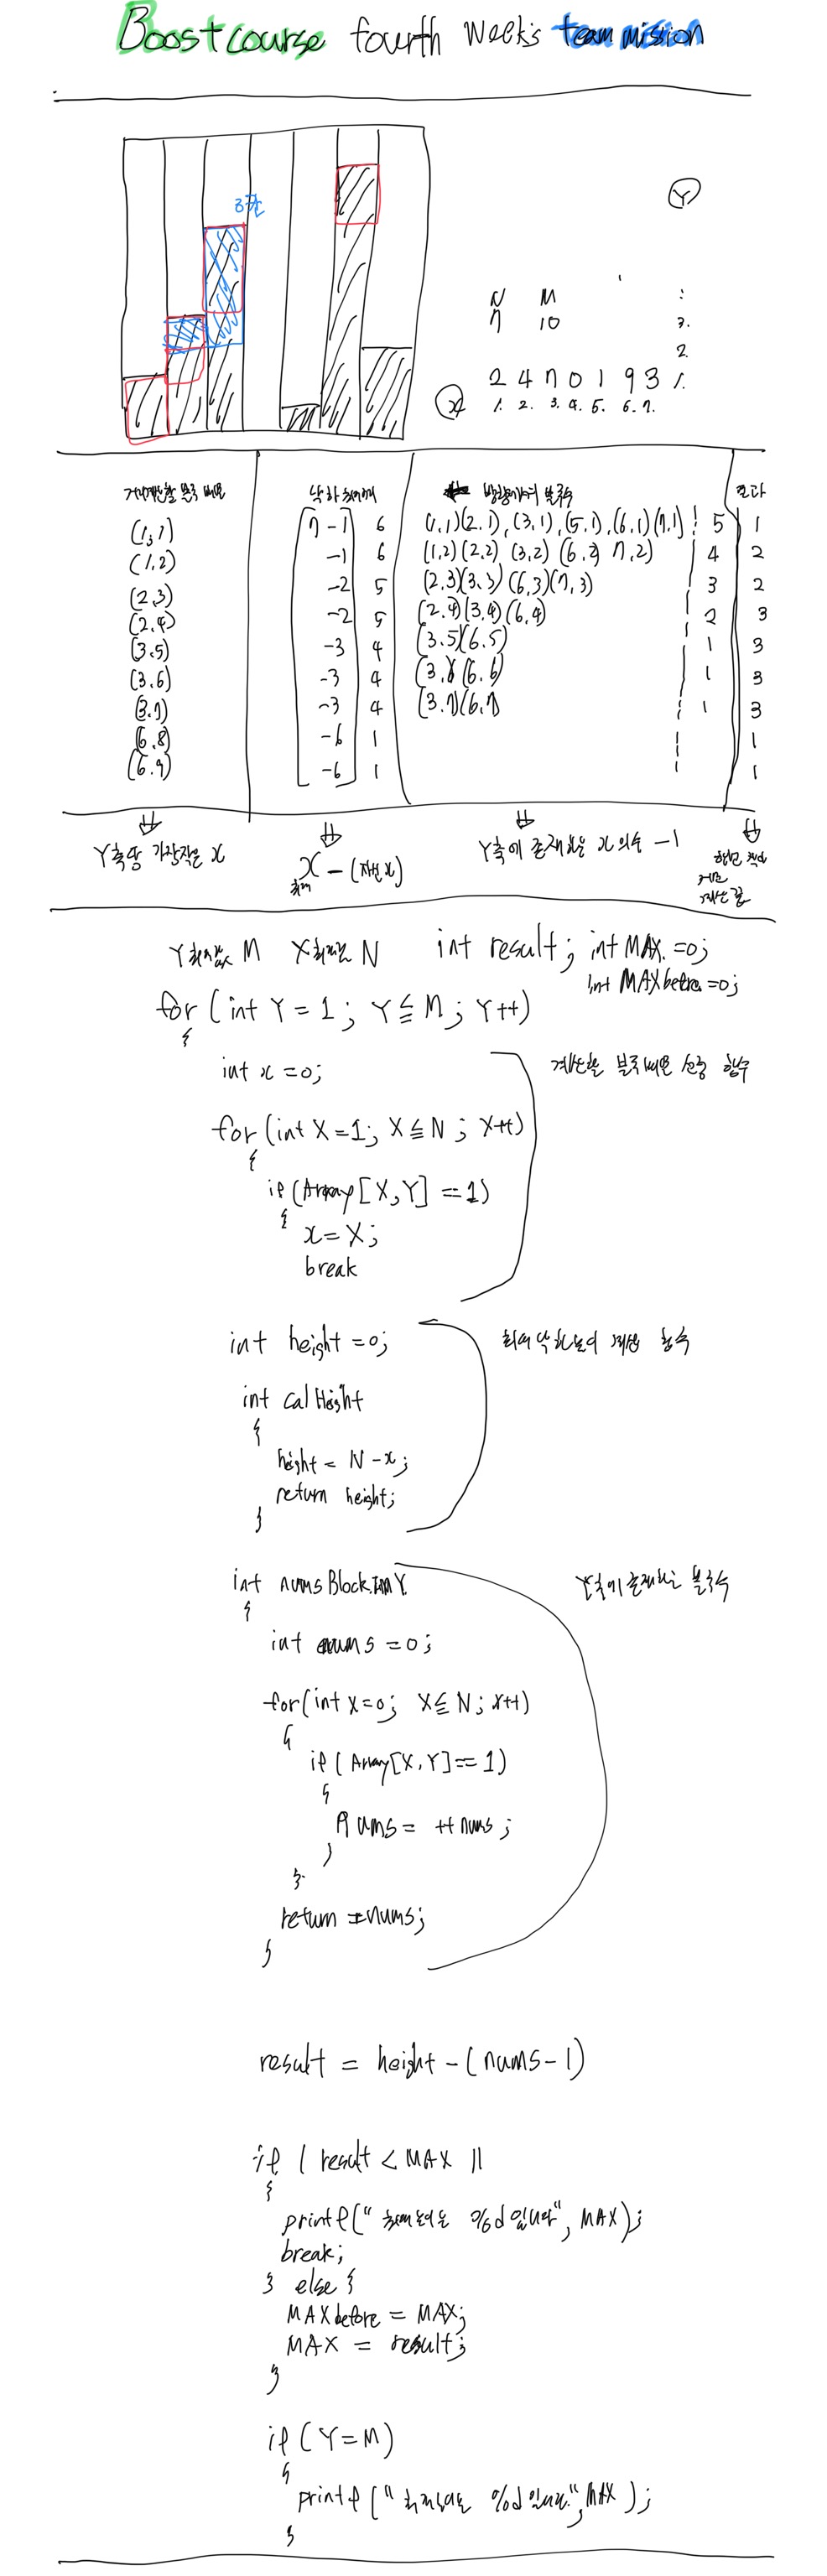 Boostcourse fourth week's team mission
3칸
Y
N M
7 10
3.
2.
2 4 7 0 1 9 3 1.
X 1. 2. 3. 4. 5. 6. 7.
결과
(1,1) 7 - 1 6 (1,1)(2,1), (3,1), (5,1), (6,1) (7,1) 5 1
(1,2) -1 6 (1,2)(2,2) (3,2) (6,2) 7,2) 4 2
(2,3) -2 5 (2,3)(3,3) (6,3)(7,3) 3 2
(2,4) -2 5 (2,4)(3,4)(6,4) 2 3
(3,5) -3 4 (3,5)(6,5) 1 3
(3,6) -3 4 (3,6 (6,6) 1 3
(3,7) -3 4 (3,7)(6,7) 1 3
(6,8) -6 1 1
(6,9) -6 1 1
Y축당 가장작은 x
x - (자신x)
최대
Y축에 존재하는 x의수 -1
Y최대값 M X최대값 N int result; int MAX =0;
int MAXbefore=0;
for (int Y = 1 ; Y ≦ M ; Y++)
{
int x =0; 계산할 블록 선정 함수
for (int X=1; X≦N ; X++)
{
if (Array[X,Y] ==1)
{
x=X;
break
int height =0; 최대 낙하높이 계산 함수
int calHeight
{
height = N-x;
return height;
}
int numsBlockInY Y축에 존재하는 블록수
{
int nums =0;
for(int x=0; X≦N; x++)
{
if (Array[X,Y]==1)
{
nums = ++nums;
}
}
return nums;
}
result = height - (nums-1)
if ( result < MAX ||
{
printf(" %d입니다", MAX);
break;
} else {
MAXbefore = MAX;
MAX = result;
}
if (Y=M)
{
printf (" %d입니다.", MAX );
}